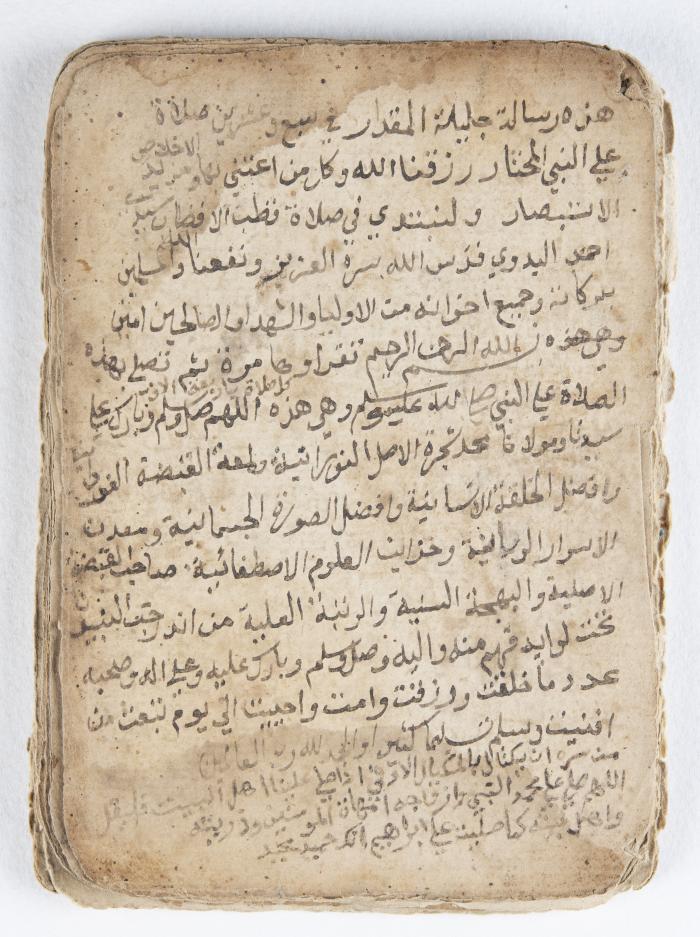 هذه رسالة جليلة المقدار في سبع وعشرين صلاة
علي النبي المختار رزقنا الله وكل من اعتني بها ومزيد الاخلاص
الاستبصار ولنبتدي في صلاة قطب الاقطاب سيدي
احمد البدوي قدس الله سره العزيز ونفعنا والمسلمين
ببركاته وجميع اخوانه من الاوليا والشهدا والصالحين امين
وهي هذه بسم الله الرحمن الرحيم تقراوها مرة ثم تصلي بهذه
الصلاة علي النبي صلي الله عليه وسلم وهي هذه اللهم صل وسلم وبارك علي
سيدنا ومولانا محمد شجرة الاصل النورانية ولمعة القبضة
وافضل الخلقة الانسانية وافضل الصورة الجسمانية ومعدن
الاسرار الربانية وخزاين العلوم الاصطفائية صاحب القبضة
الاصلية والبهجة السنية والرتبة العلية من اندرجت النبيين
تحت لوايه فهم منه واليه وصل وسلم وبارك عليه وعلي اله وصحبه
عدد ما خلقت ورزقت وامت واحييت الي يوم تبعث من
افنيت وسلم تسليما كثيرا والحمد لله رب العالمين
من سره ان يكتال بالمكيال الاوفي اذا صلي علينا اهل البيت فليقل
اللهم صل علي محمد النبي وازواجه امهات المومنين وذريته
واهل بيته كما صليت علي ابراهيم انك حميد مجيد